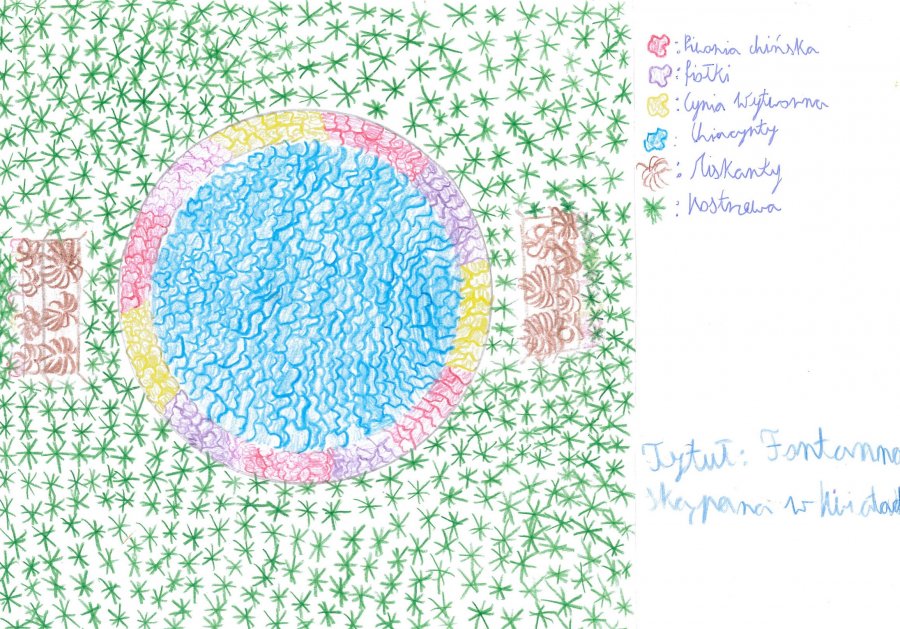 : Piwonia chińska
: fiołki
: Cynia wytworna
: Hiacynty
: Miskanty
: Kostrzewa
Tytuł: Fontanna
skąpana w kwiatach